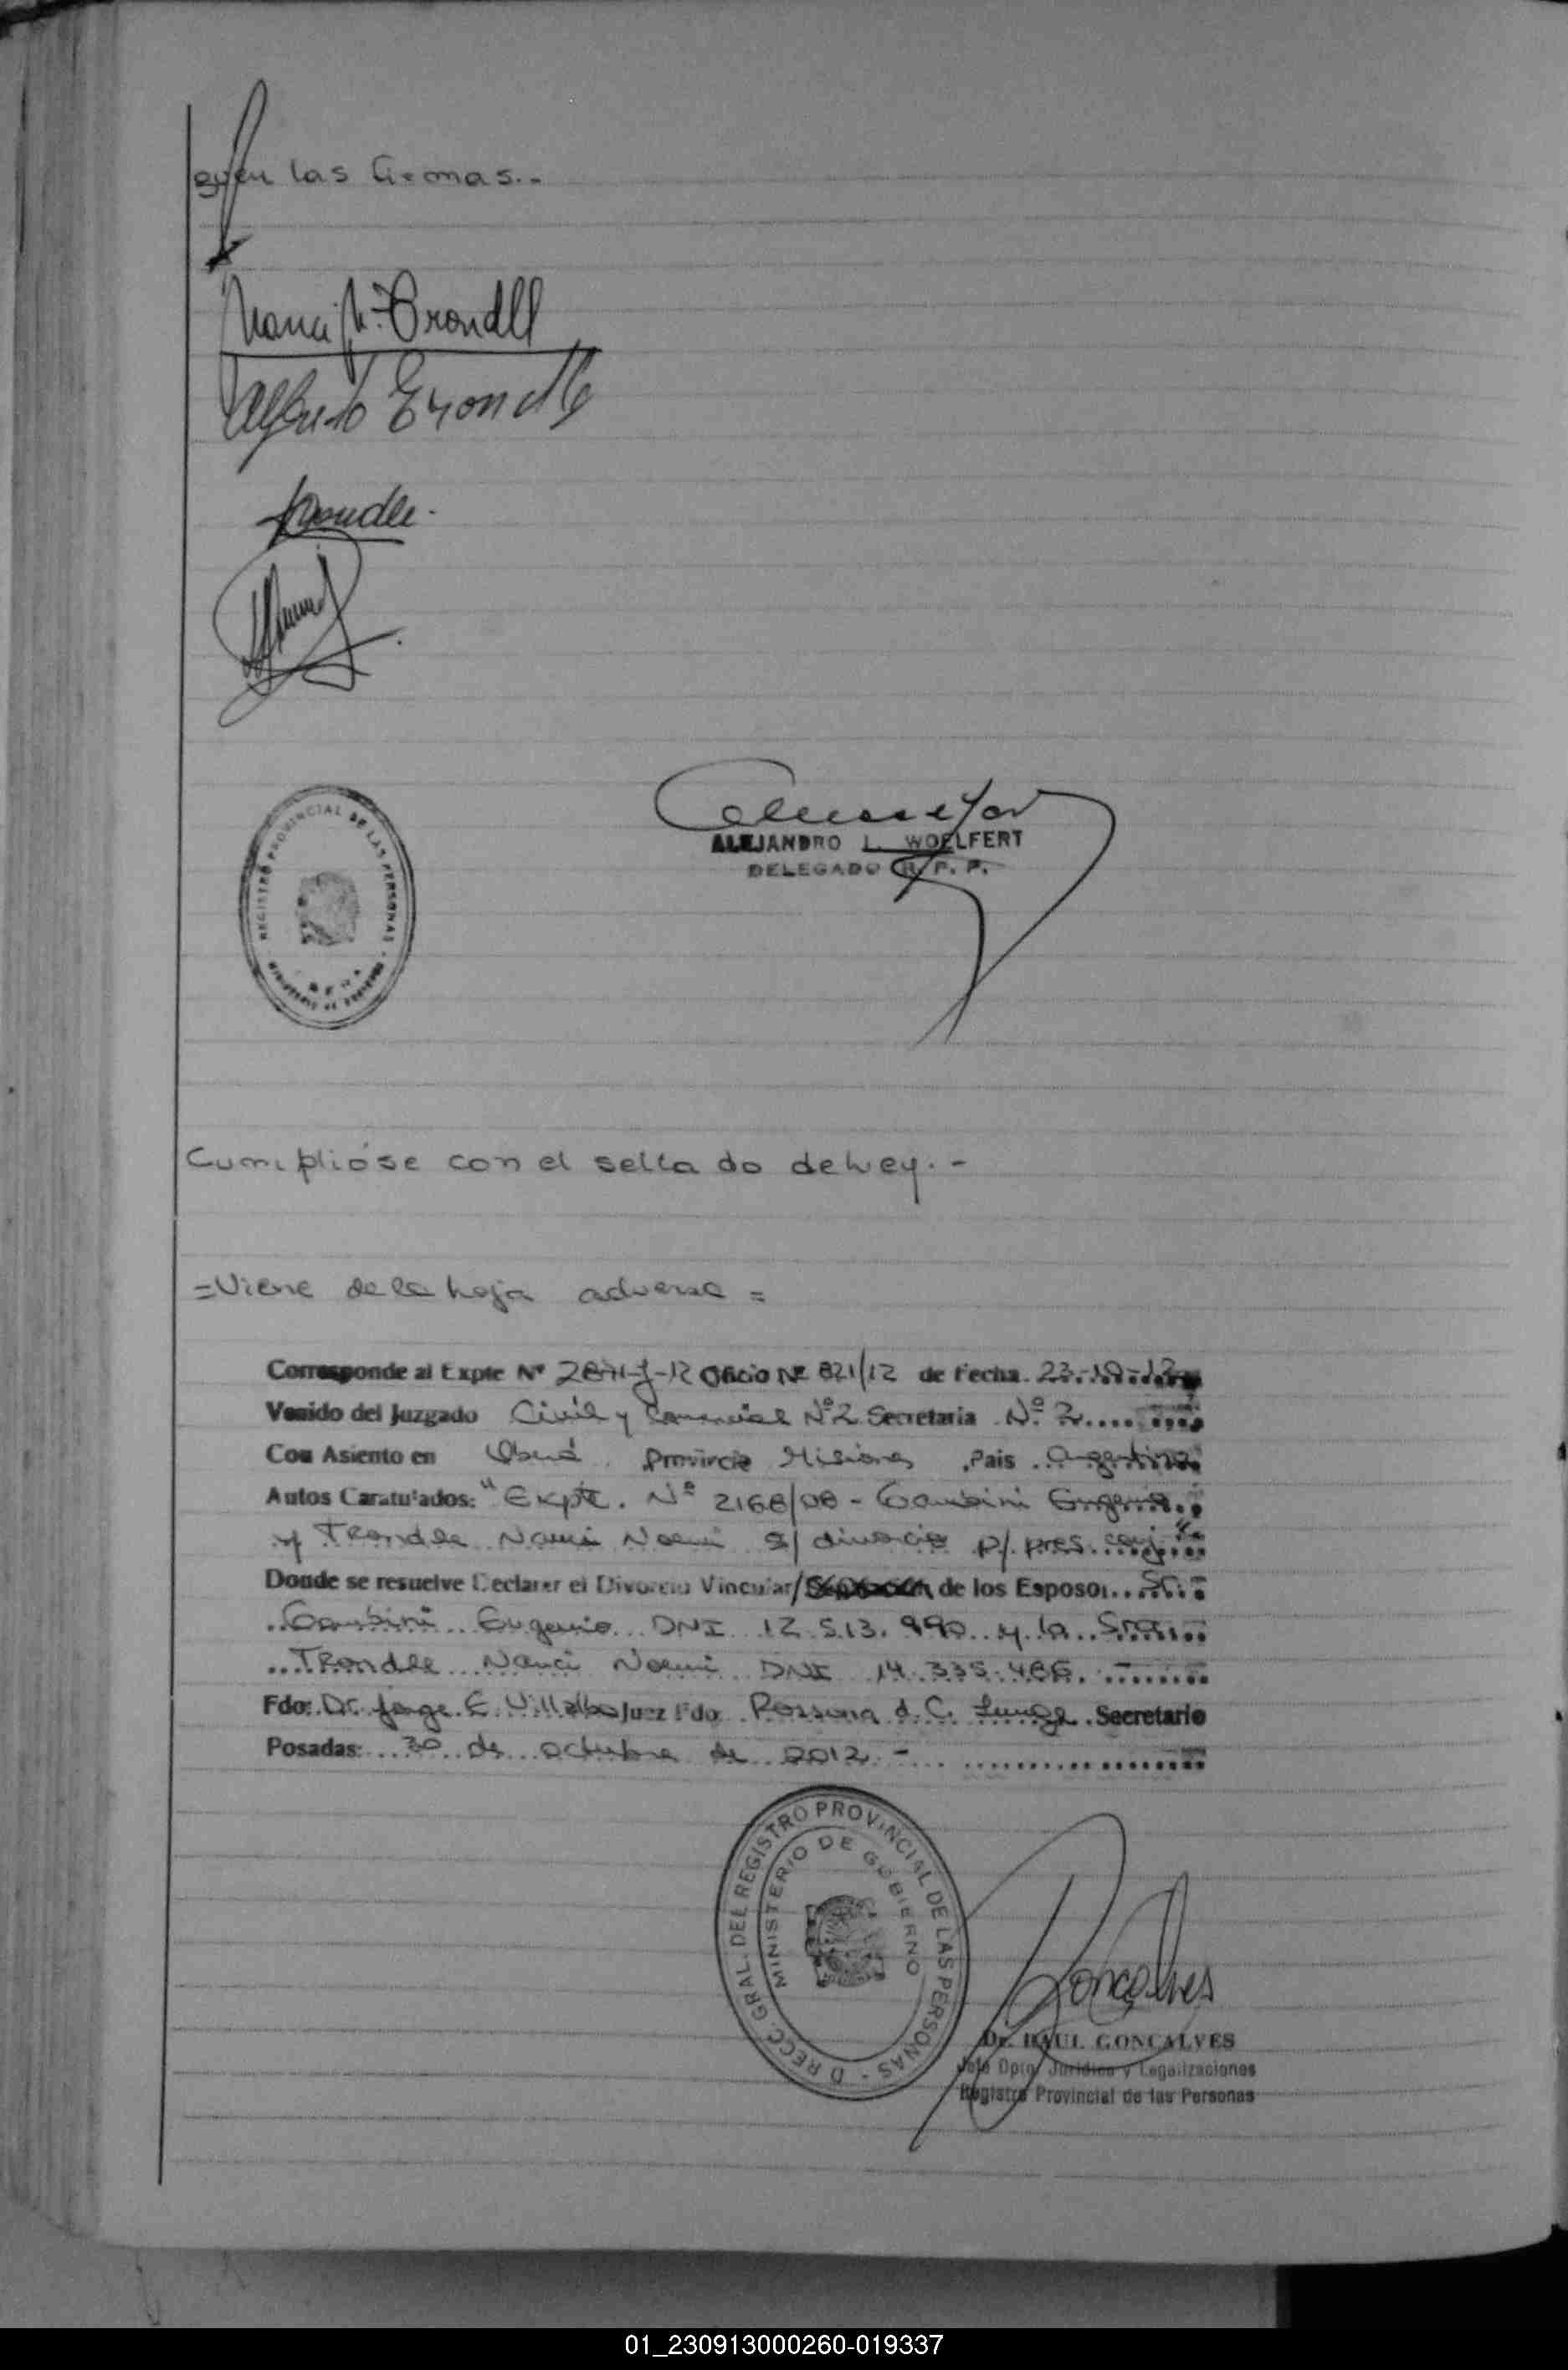 las firmas.-
Nanci N. Trondle
Alfredo Trondle
Trondle.
REGISTRO PROVINCIAL DE LAS PERSONAS
MINISTERIO DE GOBIERNO
ALEJANDRO L. WOELFERT
DELEGADO R. P. P.
Cumplióse con el sellado de ley.-
=Viene de la hoja adversa=
Corresponde al Expte Nº Oficio Nº 821/12 de Fecha 23-10-12
Venido del Juzgado Civil y Comercial Nº 2 Secretaria Nº 2
Con Asiento en Oberá Provincia Misiones Pais Argentina
Autos Caratulados: "Expte. Nº 2168/08 - Gambini Eugenio
y Trondle Nanci Noemi s/ divorcio p/ pres. conj."
Donde se resuelve Declarar el Divorcio Vincular/ de los Esposos Sr.
Gambini Eugenio DNI 12.513.990 y la Sra.
Trondle Nanci Noemi DNI 14.335.466.-
Fdo: Dr. Jorge E. Villalba Juez Fdo Rossana d. C. Secretario
Posadas: 30 de octubre de 2012.-
DIRECC. GRAL. DEL REGISTRO PROVINCIAL DE LAS PERSONAS -
MINISTERIO DE GOBIERNO
Goncalves
Dr. RAUL GONCALVES
Jefe Dpto. Jurídico y Legalizaciones
Registro Provincial de las Personas
01_230913000260-019337